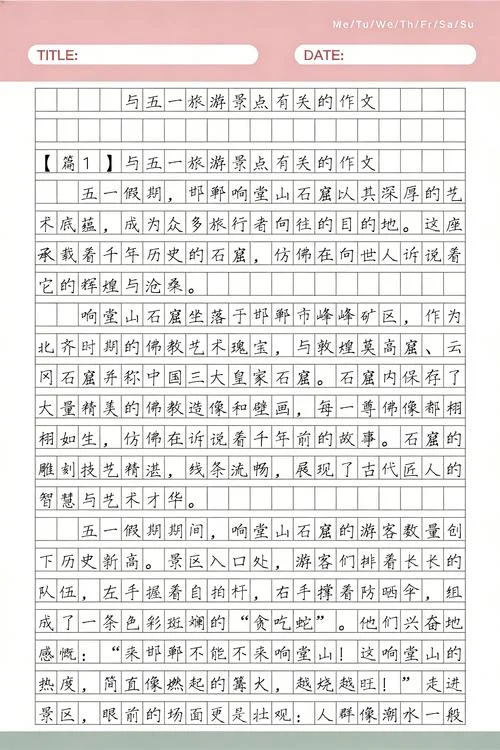 Me/Tu/We/Th/Fr/Sa/Su
TITLE:
DATE:
与五一旅游景点有关的作文
【篇1】与五一旅游景点有关的作文
五一假期，邯郸响堂山石窟以其深厚的艺
术底蕴，成为众多旅行者向往的目的地。这座
承载着千年历史的石窟，仿佛在向世人诉说着
它的辉煌与沧桑。
响堂山石窟坐落于邯郸市峰峰矿区，作为
北齐时期的佛教艺术瑰宝，与敦煌莫高窟、云
冈石窟并称中国三大皇家石窟。石窟内保存了
大量精美的佛教造像和壁画，每一尊佛像都栩
栩如生，仿佛在诉说着千年前的故事。石窟的
雕刻技艺精湛，线条流畅，展现了古代匠人的
智慧与艺术才华。
五一假期期间，响堂山石窟的游客数量创
下历史新高。景区入口处，游客们排着长长的
队伍，左手握着自拍杆，右手撑着防晒伞，组
成了一条色彩斑斓的“贪吃蛇”。他们兴奋地
感慨：“来邯郸不能不来响堂山！这响堂山的
热度，简直像燃起的篝火，越烧越旺！”走进
景区，眼前的场面更是壮观：人群像潮水一般